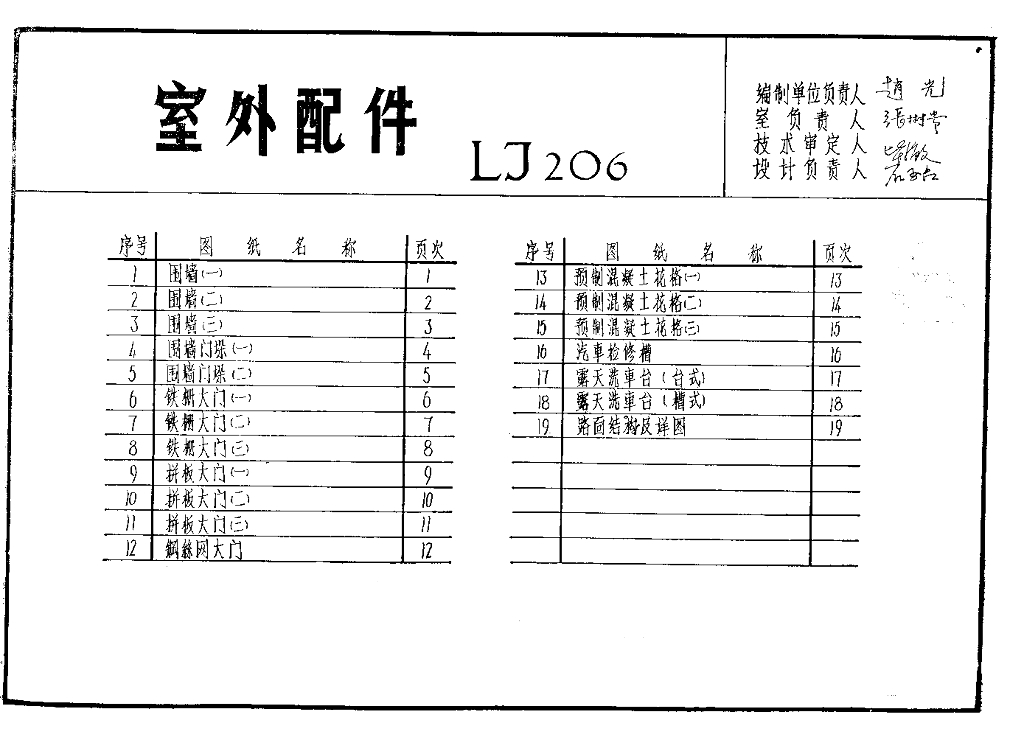 室外配件
LJ 206
编制单位负责人 趙光
室负责人
技术审定人
设计负责人
序号 图纸名称 页次
1 围墙(一) 1
2 围墙(二) 2
3 围墙(三) 3
4 围墙门垛(一) 4
5 围墙门垛(二) 5
6 铁栅大门(一) 6
7 铁栅大门(二) 7
8 铁栅大门(三) 8
9 拼板大门(一) 9
10 拼板大门(二) 10
11 拼板大门(三) 11
12 钢絲网大门 12
序号 图纸名称 页次
13 预制混凝土花格(一) 13
14 预制混凝土花格(二) 14
15 预制混凝土花格(三) 15
16 汽車检修槽 16
17 露天洗車台(台式) 17
18 露天洗車台(槽式) 18
19 路面结构及详图 19